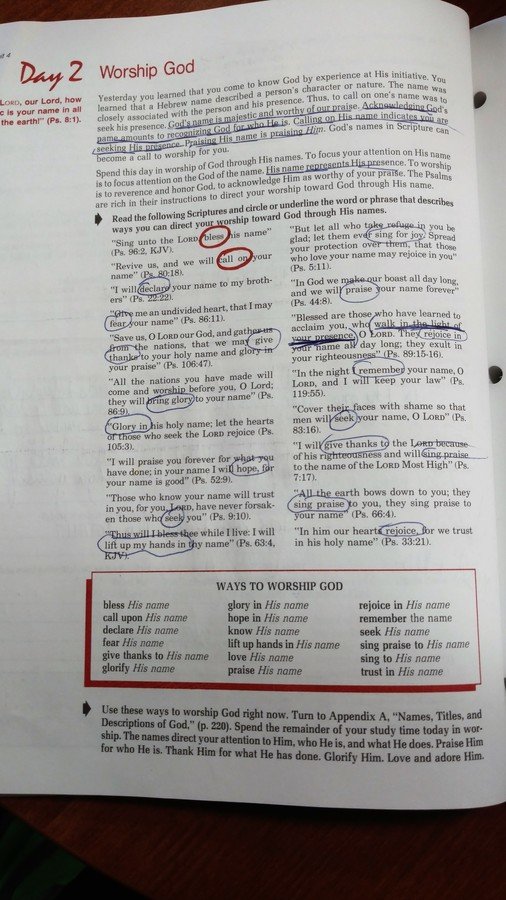 it 4
Day 2
Worship God
LORD, our Lord, how
c is your name in all
the earth!" (Ps. 8:1).
Yesterday you learned that you come to know God by experience at His initiative. You
learned that a Hebrew name described a person's character or nature. The name was
closely associated with the person and his presence. Thus, to call on one's name was to
seek his presence. God's name is majestic and worthy of our praise. Acknowledging God's
name amounts to recognizing God for who He is. Calling on His name indicates you are
seeking His presence. Praising His name is praising Him. God's names in Scripture can
become a call to worship for you.
Spend this day in worship of God through His names. To focus your attention on His name
is to focus attention on the God of the name. His name represents His presence. To worship
is to reverence and honor God, to acknowledge Him as worthy of your praise. The Psalms
are rich in their instructions to direct your worship toward God through His name.
Read the following Scriptures and circle or underline the word or phrase that describes
ways you can direct your worship toward God through His names.
"Sing unto the LORD, bless his name"
(Ps. 96:2, KJV).
"Revive us, and we will call on your
name" (Ps. 80:18).
"I will declare your name to my broth-
ers" (Ps. 22:22).
"Give me an undivided heart, that I may
fear your name" (Ps. 86:11).
"Save us, O LORD our God, and gather us
from the nations, that we may give
thanks to your holy name and glory in
your praise" (Ps. 106:47).
"All the nations you have made will
come and worship before you, O Lord;
they will bring glory to your name" (Ps.
86:9).
"Glory in his holy name; let the hearts
of those who seek the LORD rejoice (Ps.
105:3).
"I will praise you forever for what you
have done; in your name I will hope, for
your name is good" (Ps. 52:9).
"Those who know your name will trust
in you, for you, LORD, have never forsak-
en those who seek you" (Ps. 9:10).
"Thus will I bless thee while I live: I will
lift up my hands in thy name" (Ps. 63:4,
KJV).
"But let all who take refuge in you be
glad; let them ever sing for joy. Spread
your protection over them, that those
who love your name may rejoice in you"
(Ps. 5:11).
"In God we make our boast all day long,
and we will praise your name forever"
(Ps. 44:8).
"Blessed are those who have learned to
acclaim you, who walk in the light of
your presence, O LORD. They rejoice in
your name all day long; they exult in
your righteousness" (Ps. 89:15-16).
"In the night I remember your name, O
LORD, and I will keep your law" (Ps.
119:55).
"Cover their faces with shame so that
men will seek your name, O LORD" (Ps.
83:16).
"I will give thanks to the LORD because
of his righteousness and will sing praise
to the name of the LORD Most High" (Ps.
7:17).
"All the earth bows down to you; they
sing praise to you, they sing praise to
your name" (Ps. 66:4).
"In him our hearts rejoice, for we trust
in his holy name" (Ps. 33:21).
WAYS TO WORSHIP GOD
bless His name
call upon His name
declare His name
fear His name
give thanks to His name
glorify His name
glory in His name
hope in His name
know His name
lift up hands in His name
love His name
praise His name
rejoice in His name
remember the name
seek His name
sing praise to His name
sing to His name
trust in His name
Use these ways to worship God right now. Turn to Appendix A, "Names, Titles, and
Descriptions of God," (p. 220). Spend the remainder of your study time today in wor-
ship. The names direct your attention to Him, who He is, and what He does. Praise Him
for who He is. Thank Him for what He has done. Glorify Him. Love and adore Him.